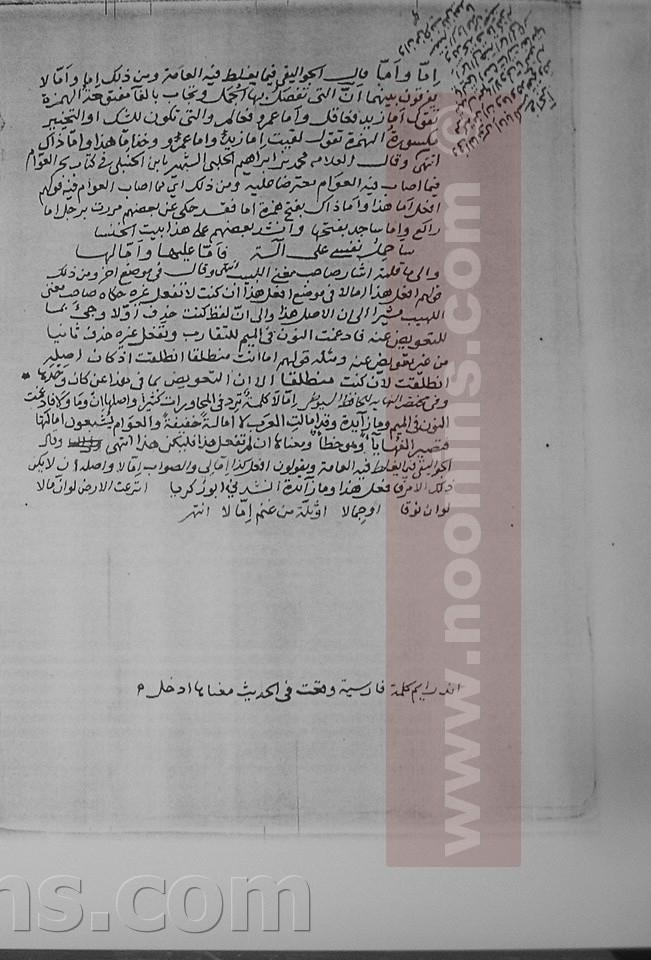 إمّا وأمّا قال الجواليقي فيما يغلط فيه العامة ومن ذلك إما وأمالا
يفرقون بينهما أنّ التي تفصل بها الجمل وتجاب بالفا مفتوحة الهمزة
تقول أما زيد فعاقل وأما عمرو فعالم والتي تكون للشك او التخيير
مكسورة الهمزة تقول لقيت إما زيدا وإما عمرو وخذ إما هذا وإما ذاك
انتهى وقال العلامه محمد بن ابراهيم الحلبي الشهير بابن الحنبلي في كتاب بحر العوام
فيما اصاب فيه العوام معترضا عليه ومن ذلك اي مما اصاب العوام فيه قولهم
افعل أما هذا وأما ذاك بفتح همزة أما فقد حكي عن بعضهم مررت برجل أما
راكع وأما ساجد بفتحها وانشد بعضهم على هذا بيت الخنسا
ساحمل نفسي على آلة فأمّا عليها وأمّا لها
والى ما قلته اشار صاحب مغني اللبيب انتهى وقال في موضع اخر ومن ذلك
قولهم افعل هذا امالا في موضع افعل هذا ان كنت لا تفعل غيره حكاه صاحب مغني
اللبيب مشيرا الى ان الاصل هذا والى ان لفظ كنت حذف أوّلا وجئ بما
للتعويض عنه فادغمت النون في الميم للتقارب وتفعل غيره حذف ثانيا
من غير تعويض عنه ومثله قولهم اما انت منطلقا انطلقت اذ كان اصله
انطلقت لان كنت منطلقا الا ان التعويض بما في هذا عن كان وحدها
وفي مختصر النهايه للحافظ السيوطي إمّالا كلمة ترد في المحاورات كثيرا واصلها ان وما ولا فادغمت
النون في الميم وما زايدة وقد امالت العرب لا امالة خفيفة والعوام يشبعون امالتها
فتصير الفها يا وهو خطأ ومعناها ان لم تفعل هذا فليكن هذا انتهى وقال
الجواليقي فيما يغلط فيه العامة ويقولون افعل كذا إمالي والصواب إمّالا واصله ان لا يكن
ذلك الامر فافعل هذا وما زائدة انشدني ابو زكريا امرعت الارض لو ان مالا
لو ان نوقا لك او جمالا او ثلة من غنم إمّا لا انتهى
اندرايم كلمة فارسية وقعت في الحديث معناها ادخل
www.noonins.com
ns.com